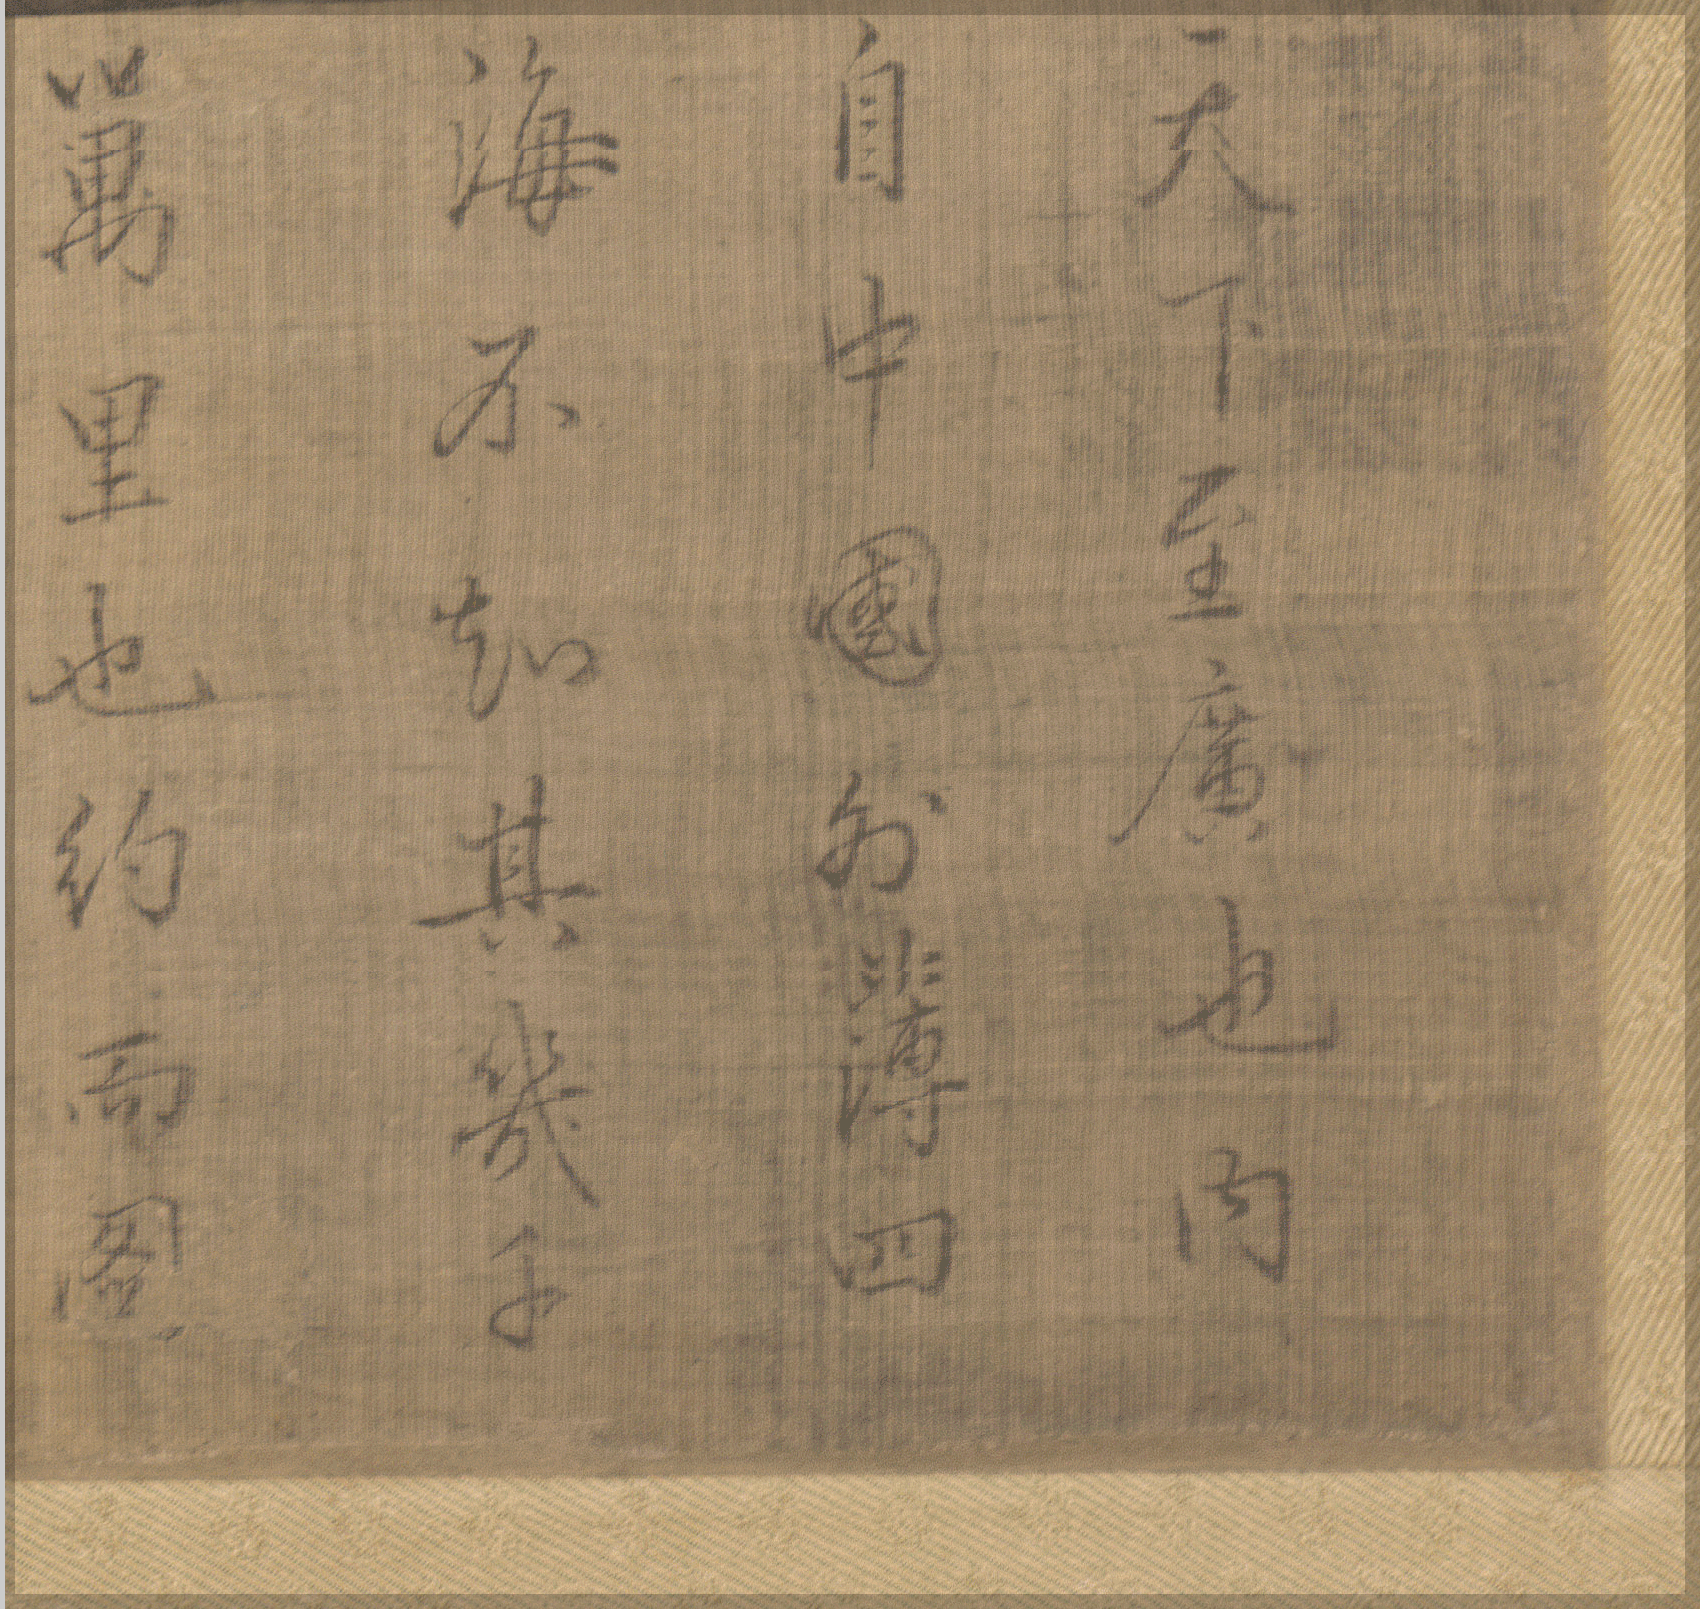 天下至廣也内
自中國外薄四
海不知其幾千
萬里也約而圖